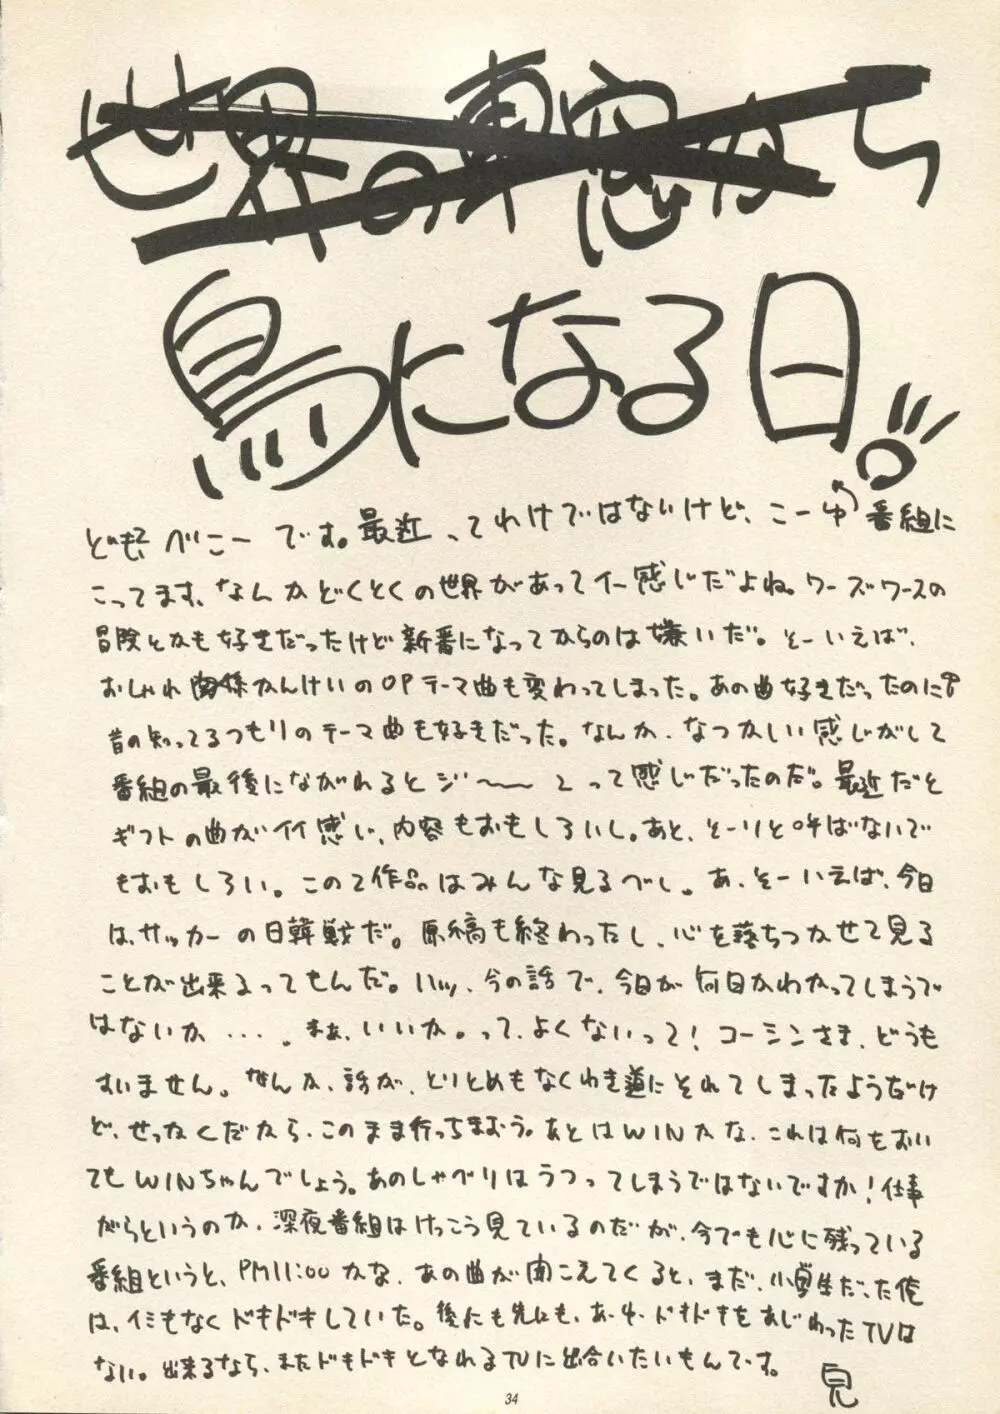 世界の車窓から
鳥になる日。
ども、べにーです。最近ってわけではないけど、こーゆ番組に
こってます、なんかどくとくの世界があってイー感じだよね。ワーズワースの
冒険とかも好きだったけど新番になってからのは嫌いだ。そーいえば、
おしゃれ関係かんけいのOPテーマ曲も変わってしまった。あの曲好きだったのに
昔の知ってるつもりのテーマ曲も好きだった。なんか、なつかしい感じがして
番組の最後にながれるとジ〜〜ンって感じだったのだ。最近だと
ギフトの曲がイイ感じ、内容もおもしろいし。あと、そーりと呼ばないで
もおもしろい。この2作品はみんな見るべし。あ、そーいえば、今日
は、サッカーの日韓戦だ。原稿も終わったし、心を落ちつかせて見る
ことが出来るってもんだ。ハッ、今の話で、今日が何日かわかってしまうで
はないか・・・。まぁ、いいか。って、よくないって!コーシンさま、どうも
すいません。なんか、話が、とりとめもなくわき道にそれてしまったようだけ
ど、せっかくだから、このまま行っちまおう。あとはWINかな、これは何をおい
てもWINちゃんでしょう。あのしゃべりはうつってしまうではないですか!仕事
がらというのか、深夜番組はけっこう見ているのだが、今でも心に残っている
番組というと、PM11:00かな、あの曲が聞こえてくると、まだ、小学生だった俺
は、イミもなくドキドキしていた。後にも先にも、あーゆ、ドキドキをあじわったTVは
ない。出来るなら、またドキドキとなれるTVに出合いたいもんです。
34